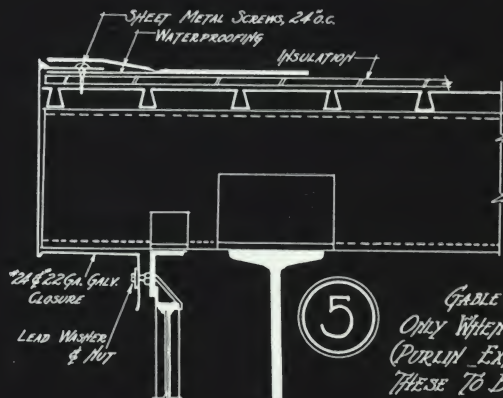 SHEET METAL SCREWS, 24" O.C.
WATERPROOFING
INSULATION
*24 & 22 GA. GALV.
CLOSURE
LEAD WASHER
& NUT
5
GABLE
ONLY WHEN
(PURLIN
THESE TO